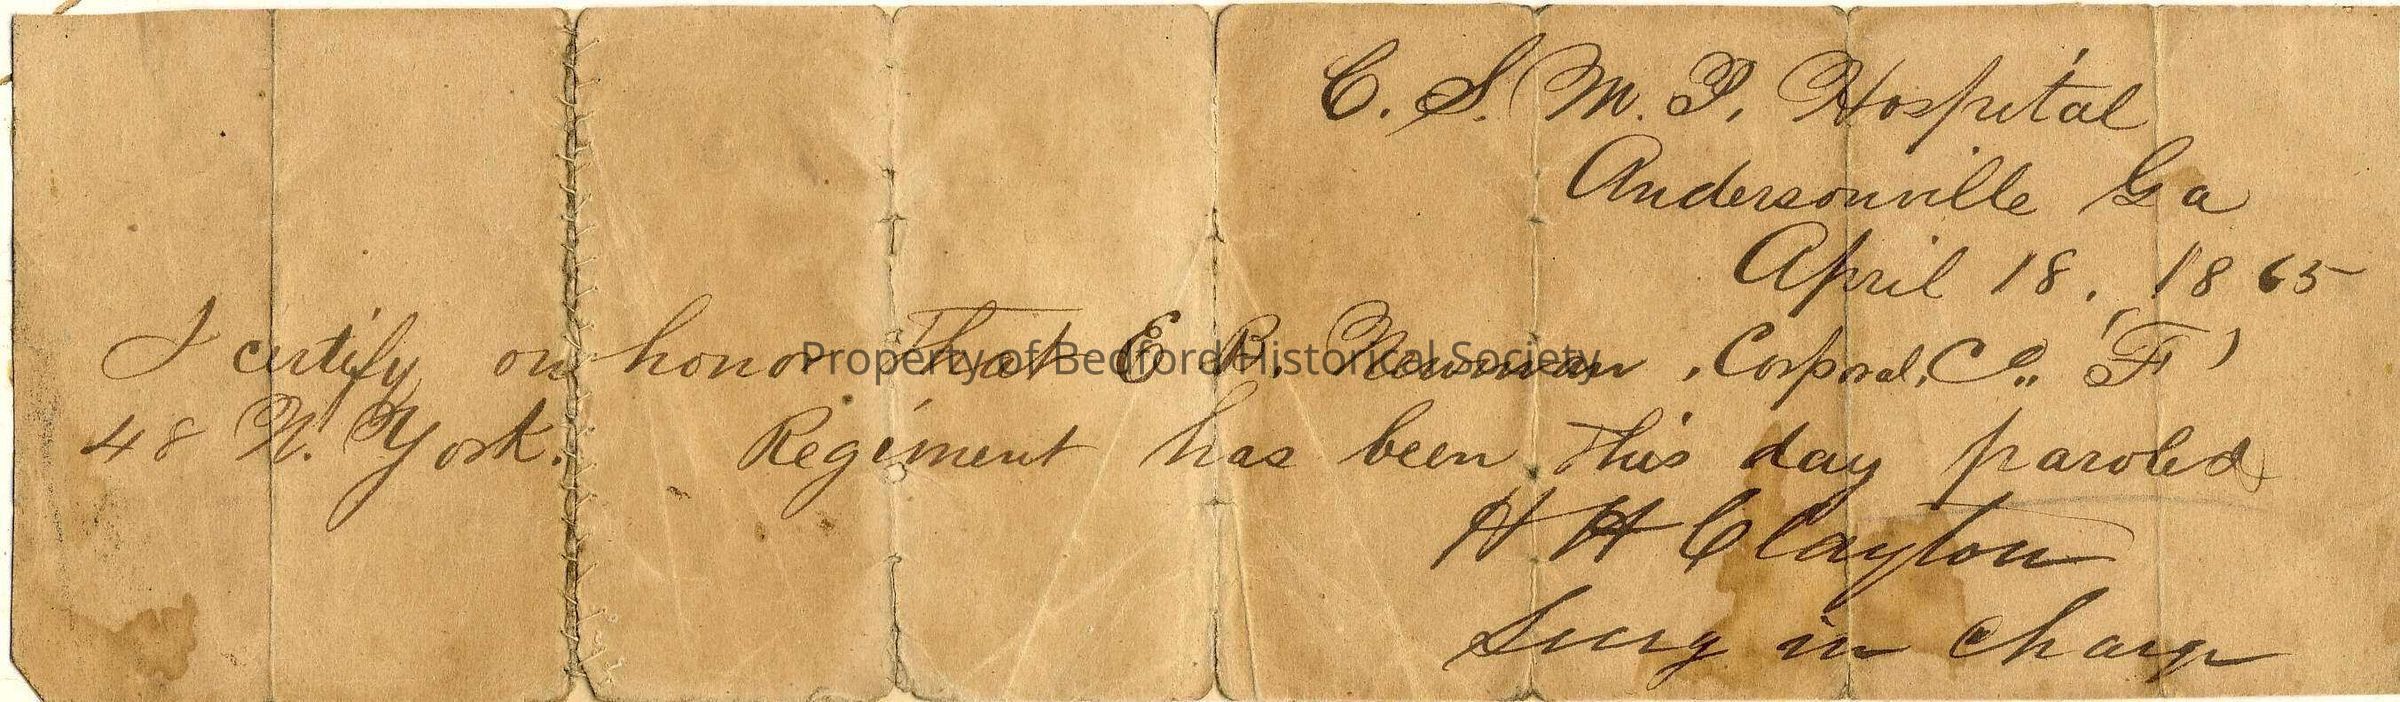 C. S. M. P. Hospital
Andersonville Ga
April 18, 1865
I certify on honor That E. R. Newman, Corporal, Co., "F"
48 N. York. Regiment has been This day paroled
H H Clayton
Surg in charge
Property of Bedford Historical Society